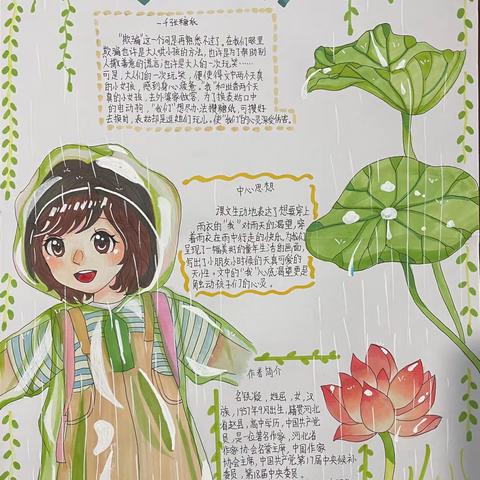 一千张糖纸
"欺骗"这个词是再熟悉不过了。在我们眼里
欺骗也许是大人哄小孩的方法,也许是为了帮助别
人撒善意的谎言,也许是大人的一次玩笑……
可是,大人们的一次玩笑,便使得文中两个天真
的小女孩,感到身心疲惫。"我"和世香两个天
真的小女孩,去外婆家做客。为了换表姑口中
的电动狗,"我们"想尽办法攒糖纸,可攒好
去换时,表姑却是逗她们玩儿。使"我们"的心灵深受伤害。
中心思想
课文生动地表达了想要穿上
雨衣的"我"对雨天的渴望,穿
着雨衣在雨中行走的快乐。为我们
呈现了一幅美好的童年生活的画面,
写出了小朋友小时候的天真可爱的
天小生。文中的"我"心底渴望更是
触动孩子们的心灵。
作者简介
名铁凝,姓屈,女,汉
族,1957年9月出生,籍贯河北
省赵县,高中学历,中国共产党
员,是一位著名作家,河北省
作家协会名誉主席,中国作家
协会主席,中国共产党第17届中央候补
委员,第18届中央委员。